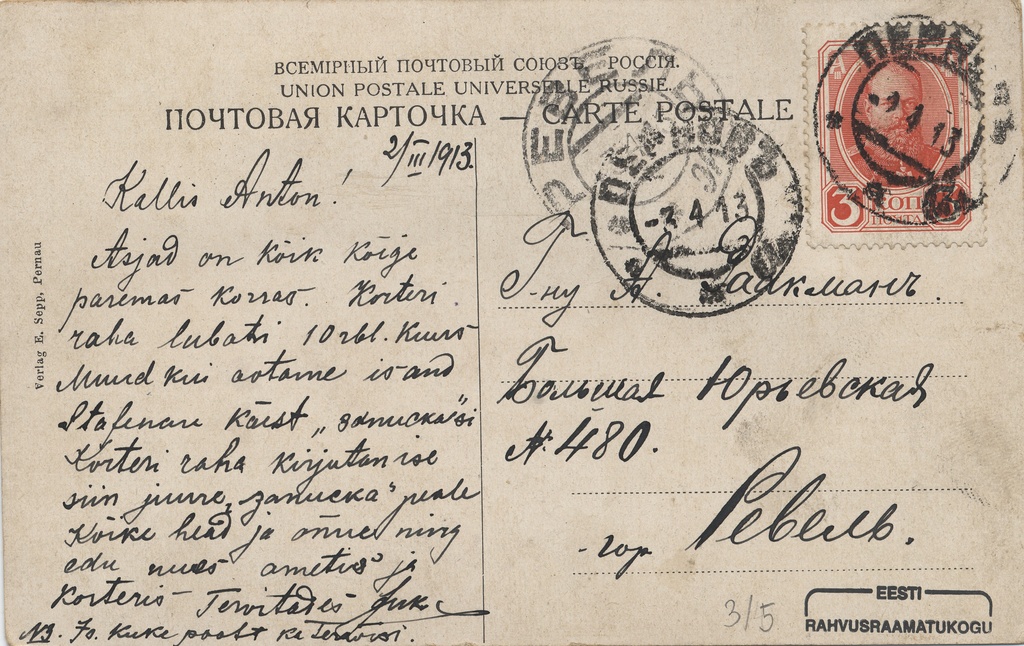 ВСЕМІРНЫЙ ПОЧТОВЫЙ СОЮЗЪ. РОССІЯ.
UNION POSTALE UNIVERSELLE RUSSIE.
ПОЧТОВАЯ КАРТОЧКА — CARTE POSTALE
2/III 1913.
Kallis Anton!
Asjad on kõik kõige
paremas korras. Korteri
raha lubati 10 rbl. kuus
Muud kui ootame isand
käest „записка"si
Korteri raha kirjutan ise
siin juurre „записка" peale
Kõike head ja õnne ning
edu uues ametis ja
korteris Tervitades
NB. Kuke poolt ka
Verlag E. Sepp, Pernau
ПЕРНОВЪ
-3 4 13
РЕВЕЛЬ
ПЕРНОВЪ
-3 4 13
3 КОП 3
ПОЧТА
Г-ну А. Саакманъ.
Большая Юрьевская
№ 480.
гор Ревель.
3/5
EESTI
RAHVUSRAAMATUKOGU